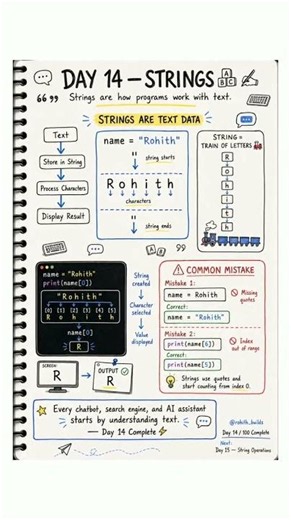 DAY 14 — STRINGS
A B C
Strings are how programs work with text.
STRINGS ARE TEXT DATA
Text
Store in String
Process Characters
Display Result
name = "Rohith"
string starts
R o h i t h
characters
string ends
STRING =
TRAIN OF LETTERS
R
o
h
i
t
h
A B
name = "Rohith"
print(name[0])
"Rohith"
[0] [1] [2] [3] [4] [5]
R o h i t h
name[0]
R
String
created
Character
selected
Value
displayed
SCREEN:
R
OUTPUT
R
COMMON MISTAKE
Mistake 1:
name = Rohith
Missing
quotes
Correct:
name = "Rohith"
Mistake 2:
print(name[6])
Index
out of range
Correct:
print(name[5])
Strings use quotes and
start counting from index 0.
Every chatbot, search engine, and AI assistant
starts by understanding text.
— Day 14 Complete
@rohith_builds
Day 14 / 100 Complete
Next:
Day 15 — String Operations